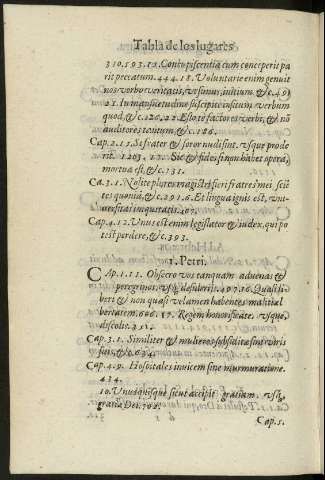 Tabla de los lugares
310.593.19. Contupiscentia cum conceperit pa
rit peccatum. 444.18. Voluntarie enim genuit
nos verbo veritatis, vt simus, initium, & c.49
21. In mansuetudine suscipite insitum verbum
quod, & c.120.22. Estote factores verbi, & nō
auditores tantum, & c.186.
Cap.2.15. Si frater & soror nudi sint. vsque prode
rit. 1203. 17. Sic & fides si non habet opera,
mortua est, & c.131.
Ca.3.1. Nolite plures magistri fieri fratres mei sciē
tes quoniā, & c.291.6. Et lingua ignis est, vni-
uersitas iniquitatis. 167.
Cap.4.12. Vnus est enim legislator & iudex, qui po
test perdere, & c.393.
1. Petri.
CAp.2.11. Obsecro vos tanquam aduenas &
peregrinos, vsq; desiderijs. 497.16. Quasi li-
beri & non quasi velamen habentes malitiæ li
bertatem. 606. 17. Regem honorificate. vsque,
discolis. 351.
Cap.3.1. Similiter & mulieres subditæ sint viris
suis, & c.634.
Cap.4.9. Hospitales inuicem sine murmuratione.
434.
10. Vnusquisque sicut accipit gratiam. vsq;
gratiæ Dei. 702.
Cap.5.